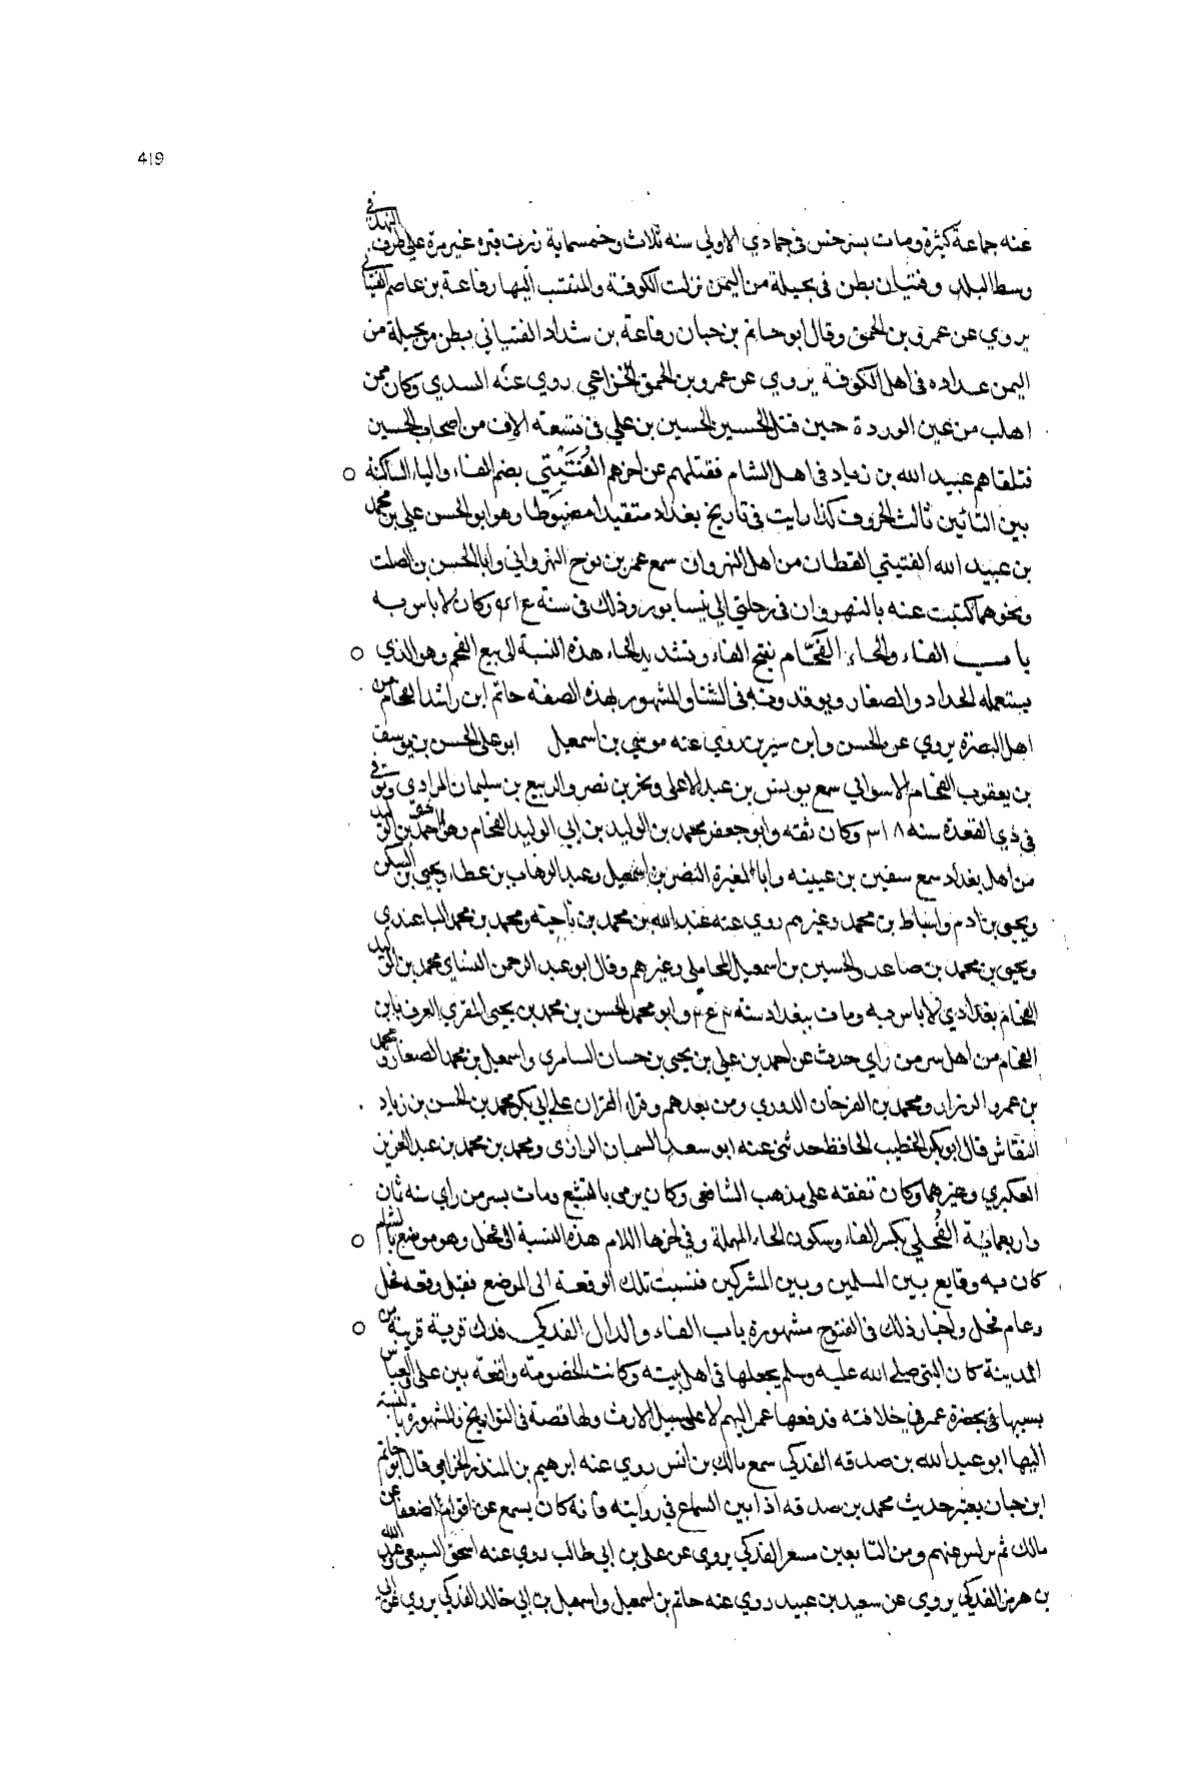 419
عنه جماعة كثيرة ومات بسرخس في جمادي الاولي سنه ثلاث وخمسماية زرت قبره غير مرة علي طرف النهر في
وسط البلد وفتيان بطن في بجيلة من اليمن نزلت الكوفة والمنتسب اليها رفاعة بن عاصم الفتياني
يروي عن عمرو بن الحمق وقال ابو حاتم بن حبان رفاعة بن شداد الفتياني بطن من بجيلة من
اليمن عداده في اهل الكوفة يروي عن عمرو بن الحمق الخزاعي روي عنه السدي وكان ممن
اهلب من عين الوردة حين قتل الحسين الحسين بن علي في تسعة الاف من اصحاب الحسين
فتلقاهم عبيد الله بن زياد في اهل الشام فقتلهم عن اخرهم الفتيتي بضم الفاء والياء الساكنة
بين التائين ثالث الحروف كذا رايت في تاريخ بغداد متقيدا مضبوطا وهو ابو الحسن علي بن محمد
بن عبيد الله الفتيتي القطان من اهل النهروان سمع عمر بن روح النهرواني وابا الحسن بن الصلت
ونحوهما كتبت عنه بالنهروان في رحلتي الي نيسابور وذلك في سنة وكان لا باس به
باب الفاء والحاء الفحّام بفتح الفاء وتشديد الحاء هذه النسبة الي بيع الفحم وهو الذي
يستعمله الحداد والصفار ويوقدونه في الشتا والمشهور بهذه الصفة حاتم ابن راشد الفحام من
اهل البصرة يروي عن الحسن وابن سيرين روي عنه موسي بن اسمعيل ابو علي الحسن بن يوسف
بن يعقوب الفحام الاسواني سمع يونس بن عبد الاعلي وبحر بن نصر والربيع بن سليمان المرادي وتوفي
في ذي القعدة سنه ٣١٨ وكان ثقه وابو جعفر محمد بن الوليد بن ابي الوليد الفحام وهو اخو احمد بن الوليد
من اهل بغداد سمع سفين بن عيينه وابا المغيرة النضر بن اسمعيل وعبد الوهاب بن عطاء ويحيي بن السكن
ويحيي بن ادم واسباط بن محمد وغيرهم روي عنه عبد الله بن محمد بن ناجية ومحمد بن محمد الباغندي
ويحيي بن محمد بن صاعد والحسين بن اسمعيل المحاملي وغيرهم وقال ابو عبد الرحمن النساي محمد بن الوليد
الفحام بغدادي لا باس به ومات ببغداد سنه وابو محمد الحسن بن محمد بن يحيي المقري العرف بابن
الفحام من اهل سر من راي حدث عن احمد بن علي بن يحيي بن حسان السامري واسمعيل بن محمد الصفار ومحمد
بن عمرو الرزاز ومحمد بن الفرخان الدوري ومن بعدهم وقرا القران علي ابي بكر محمد بن الحسن بن زياد
النقاش قال ابو بكر الخطيب الحافظ حدثني عنه ابو سعد السمان الرازي ومحمد بن محمد بن عبد العزيز
العكبري وغيرهما وكان تفقه علي مذهب الشافعي وكان يرمي بالتشيع ومات بسر من راي سنه ثمان
واربعماية الفحلي بكسر الفاء وسكون الحاء المهملة وفي اخرها اللام هذه النسبة الي فحل وهو موضع بالشام
كان به وقايع بين المسلمين وبين المشركين فنسبت تلك الوقعة الي الموضع فقيل وقعه فحل
وعام فحل واخبار ذلك في الفتوح مشهورة باب الفاء والدال الفدكي فدك قرية قريبة من
المدينة كان النبي صلي الله عليه وسلم يجعلها في اهل بيته وكانت الخصومة واقعة بين علي والعباس
بسببها في بحضرة عمر في خلافته فدفعها عمر اليهم لا علي سبيل الارث ولها قصة في التواريخ والمشهور بالنسبة
اليها ابو عبد الله بن صدقه الفدكي سمع مالك بن انس روي عنه ابرهيم بن المنذر الحزامي قال ابو حاتم
ابن حبان يعتبر حديث محمد بن صدقه اذا بين السماع في روايته فانه كان يسمع عن اقوام الضعفا عن
مالك ثم يدلس عنهم ومن التابعين مسعر الفدكي يروي عن علي بن ابي طالب روي عنه اسحق السبيعي عبد الله
بن هرمز الفدكي يروي عن سعيد بن عبيد روي عنه حاتم بن اسمعيل واسمعيل بن ابي خالد الفدكي يروي عن ابي